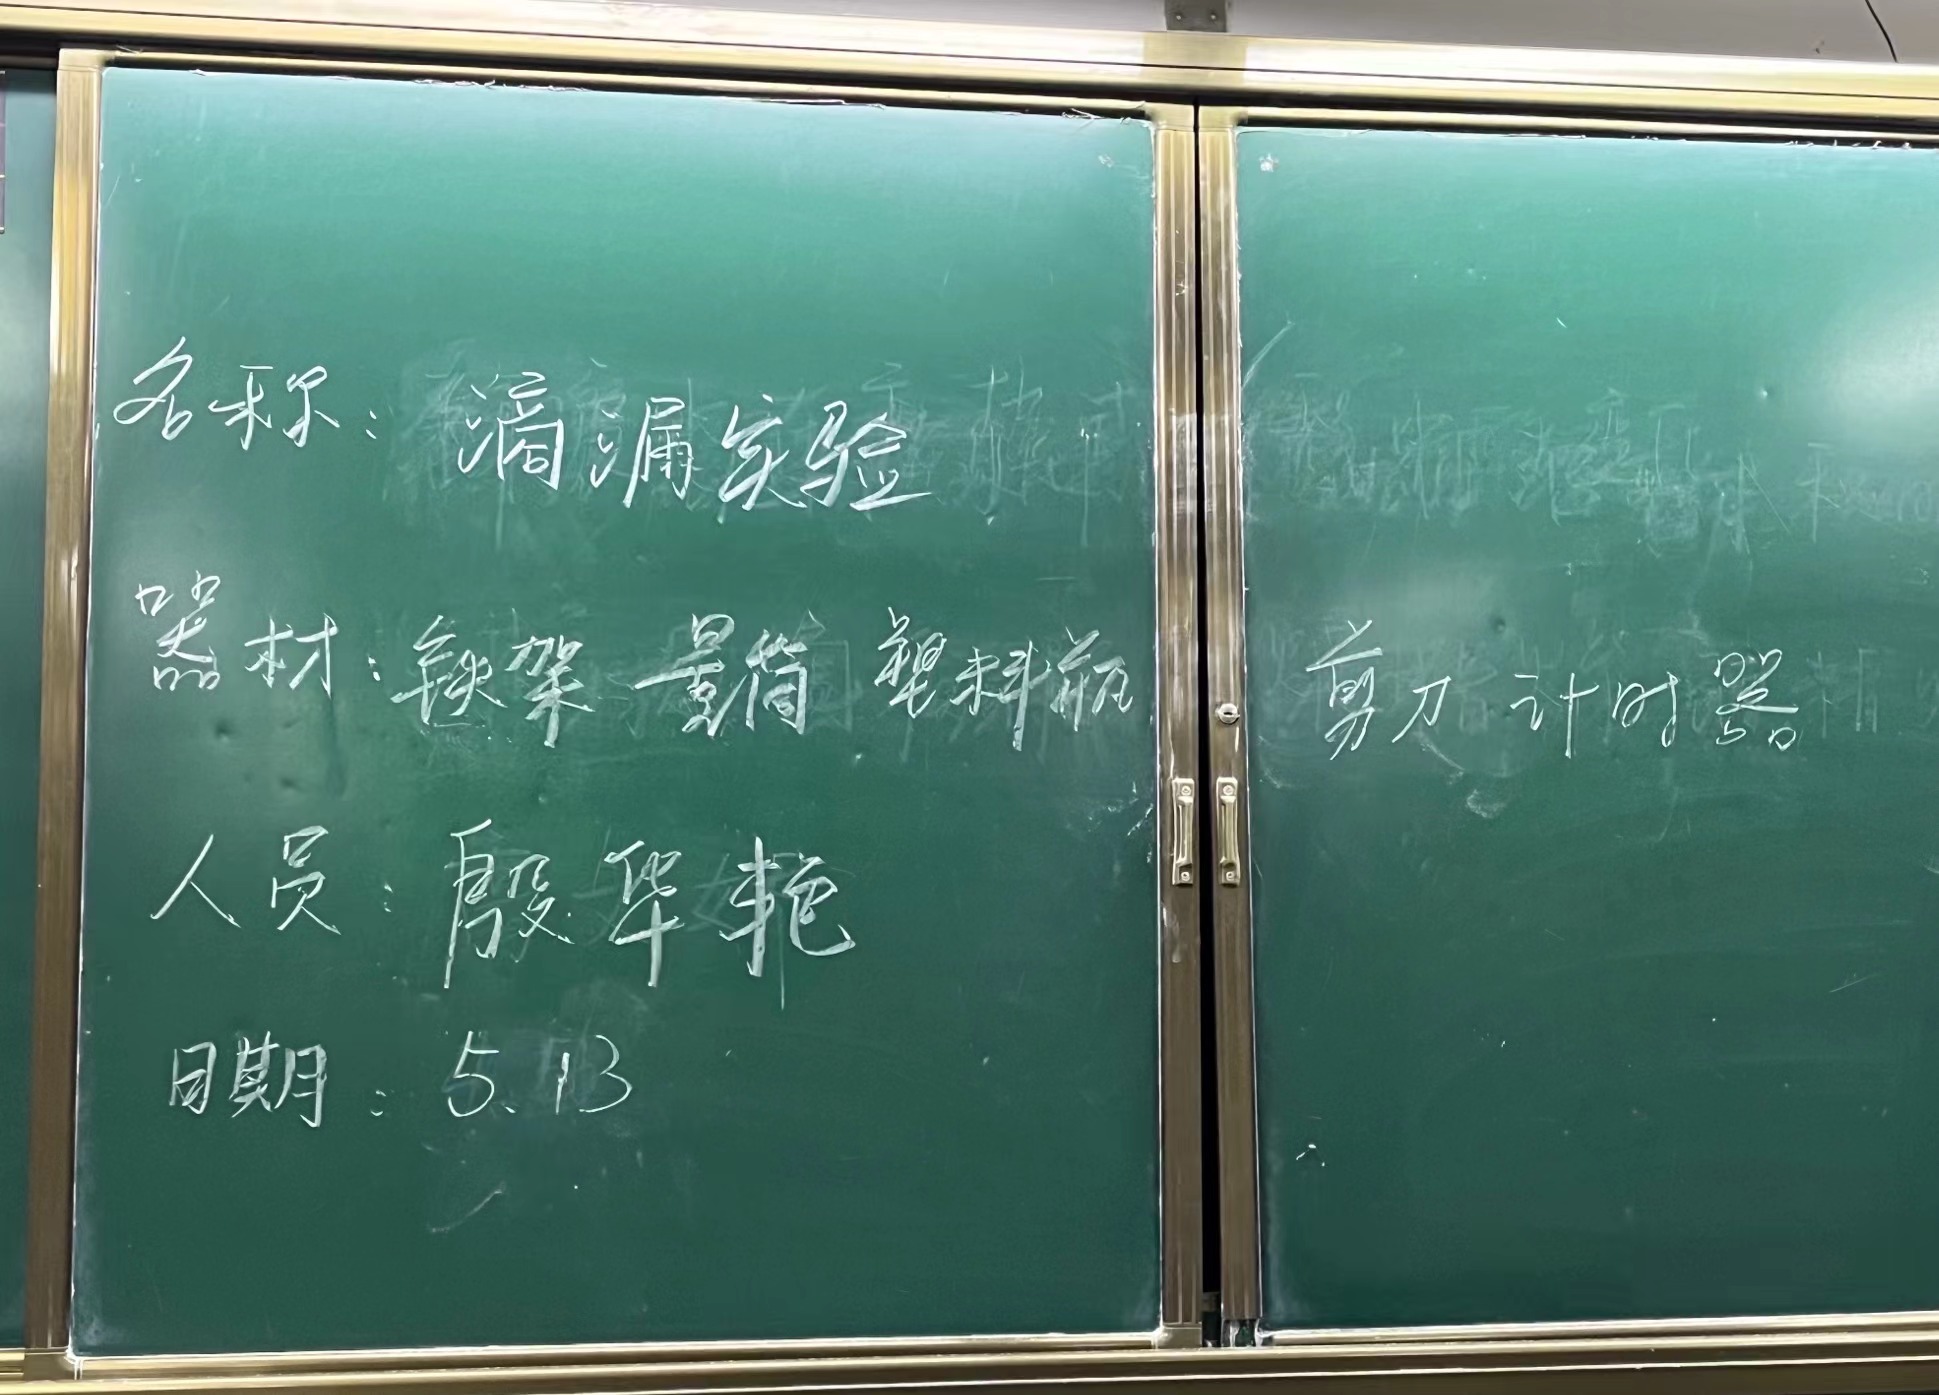 名称：滴漏实验
器材：铁架 量筒 塑料瓶 剪刀 计时器
人员：殷华艳
日期：5.13